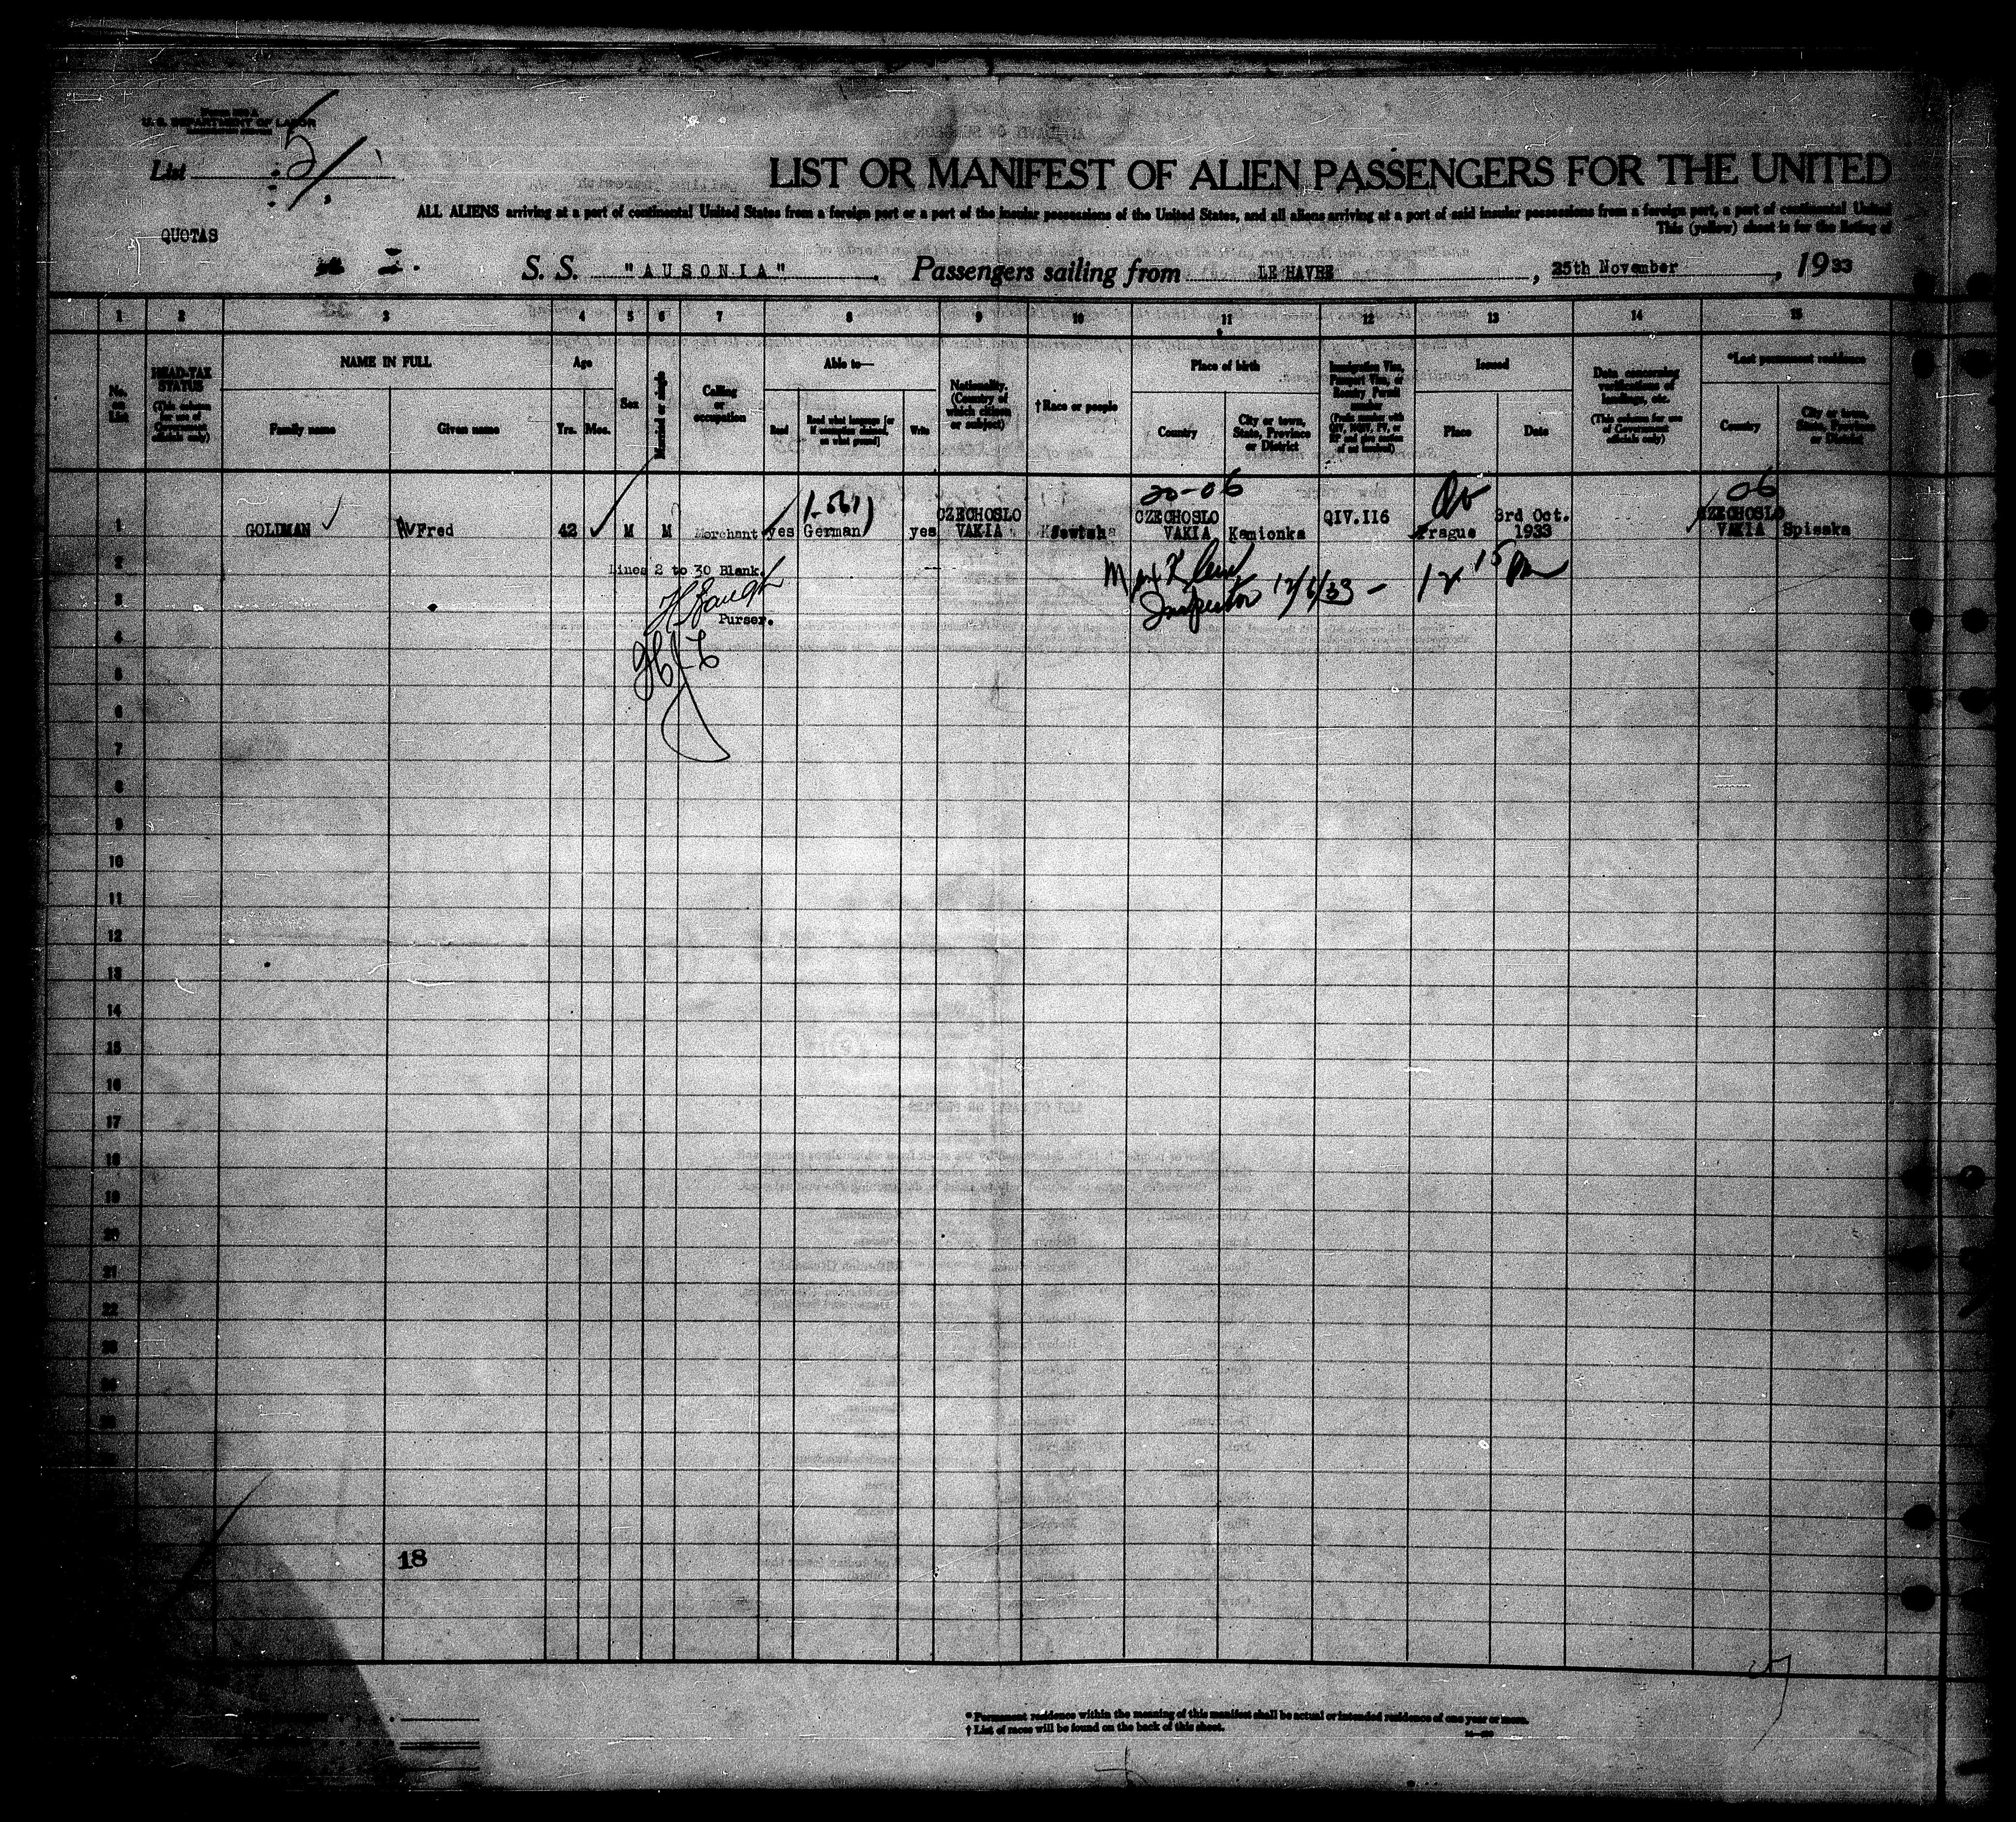 U. S. DEPARTMENT OF LABOR
List 5
LIST OR MANIFEST OF ALIEN PASSENGERS FOR THE UNITED
ALL ALIENS arriving at a port of continental United States from a foreign port or a port of the insular possessions of the United States, and all aliens arriving at a port of said insular possessions from a foreign port, a port of continental United
This (yellow) sheet is for the listing of
QUOTAS
S. S. "AUSONIA" Passengers sailing from LE HAVRE, 25th November, 1933
1 2 3 4 5 6 7 8 9 10 11 12 13 14 15
No. on List
HEAD-TAX STATUS
(This column for use of Government officials only)
NAME IN FULL
Family name
Given name
Age
Yrs. Mos.
Sex
Married or single
Calling or occupation
Able to—
Read
Read what language [or if exemption claimed, on what ground]
Write
Nationality. (Country of which citizen or subject)
† Race or people
Place of birth
Country
City or town, State, Province or District
Immigration Visa, Passport Visa, or Reentry Permit number
(Prefix number with QIV, NQIV, PV, or RP and give section of act involved)
Issued
Place
Date
Data concerning verifications of landings, etc.
(This column for use of Government officials only)
*Last permanent residence
Country
City or town, State, Province or District
20-06
06
1 GOLDMAN Fred 42 M M Merchant yes German yes CZECHOSLO VAKIA CZECHOSLO VAKIA Kamionka QIV.116 Prague 3rd Oct. 1933 CZECHOSLO VAKIA Spisska
2 Lines 2 to 30 Blank.
Inspector 12/6/33 - 12 15 PM
3
Purser.
4
5
6
7
8
9
10
11
12
13
14
15
16
17
18
19
20
21
22
23
18
* Permanent residence within the meaning of this manifest shall be actual or intended residence of one year or more.
† List of races will be found on the back of this sheet.